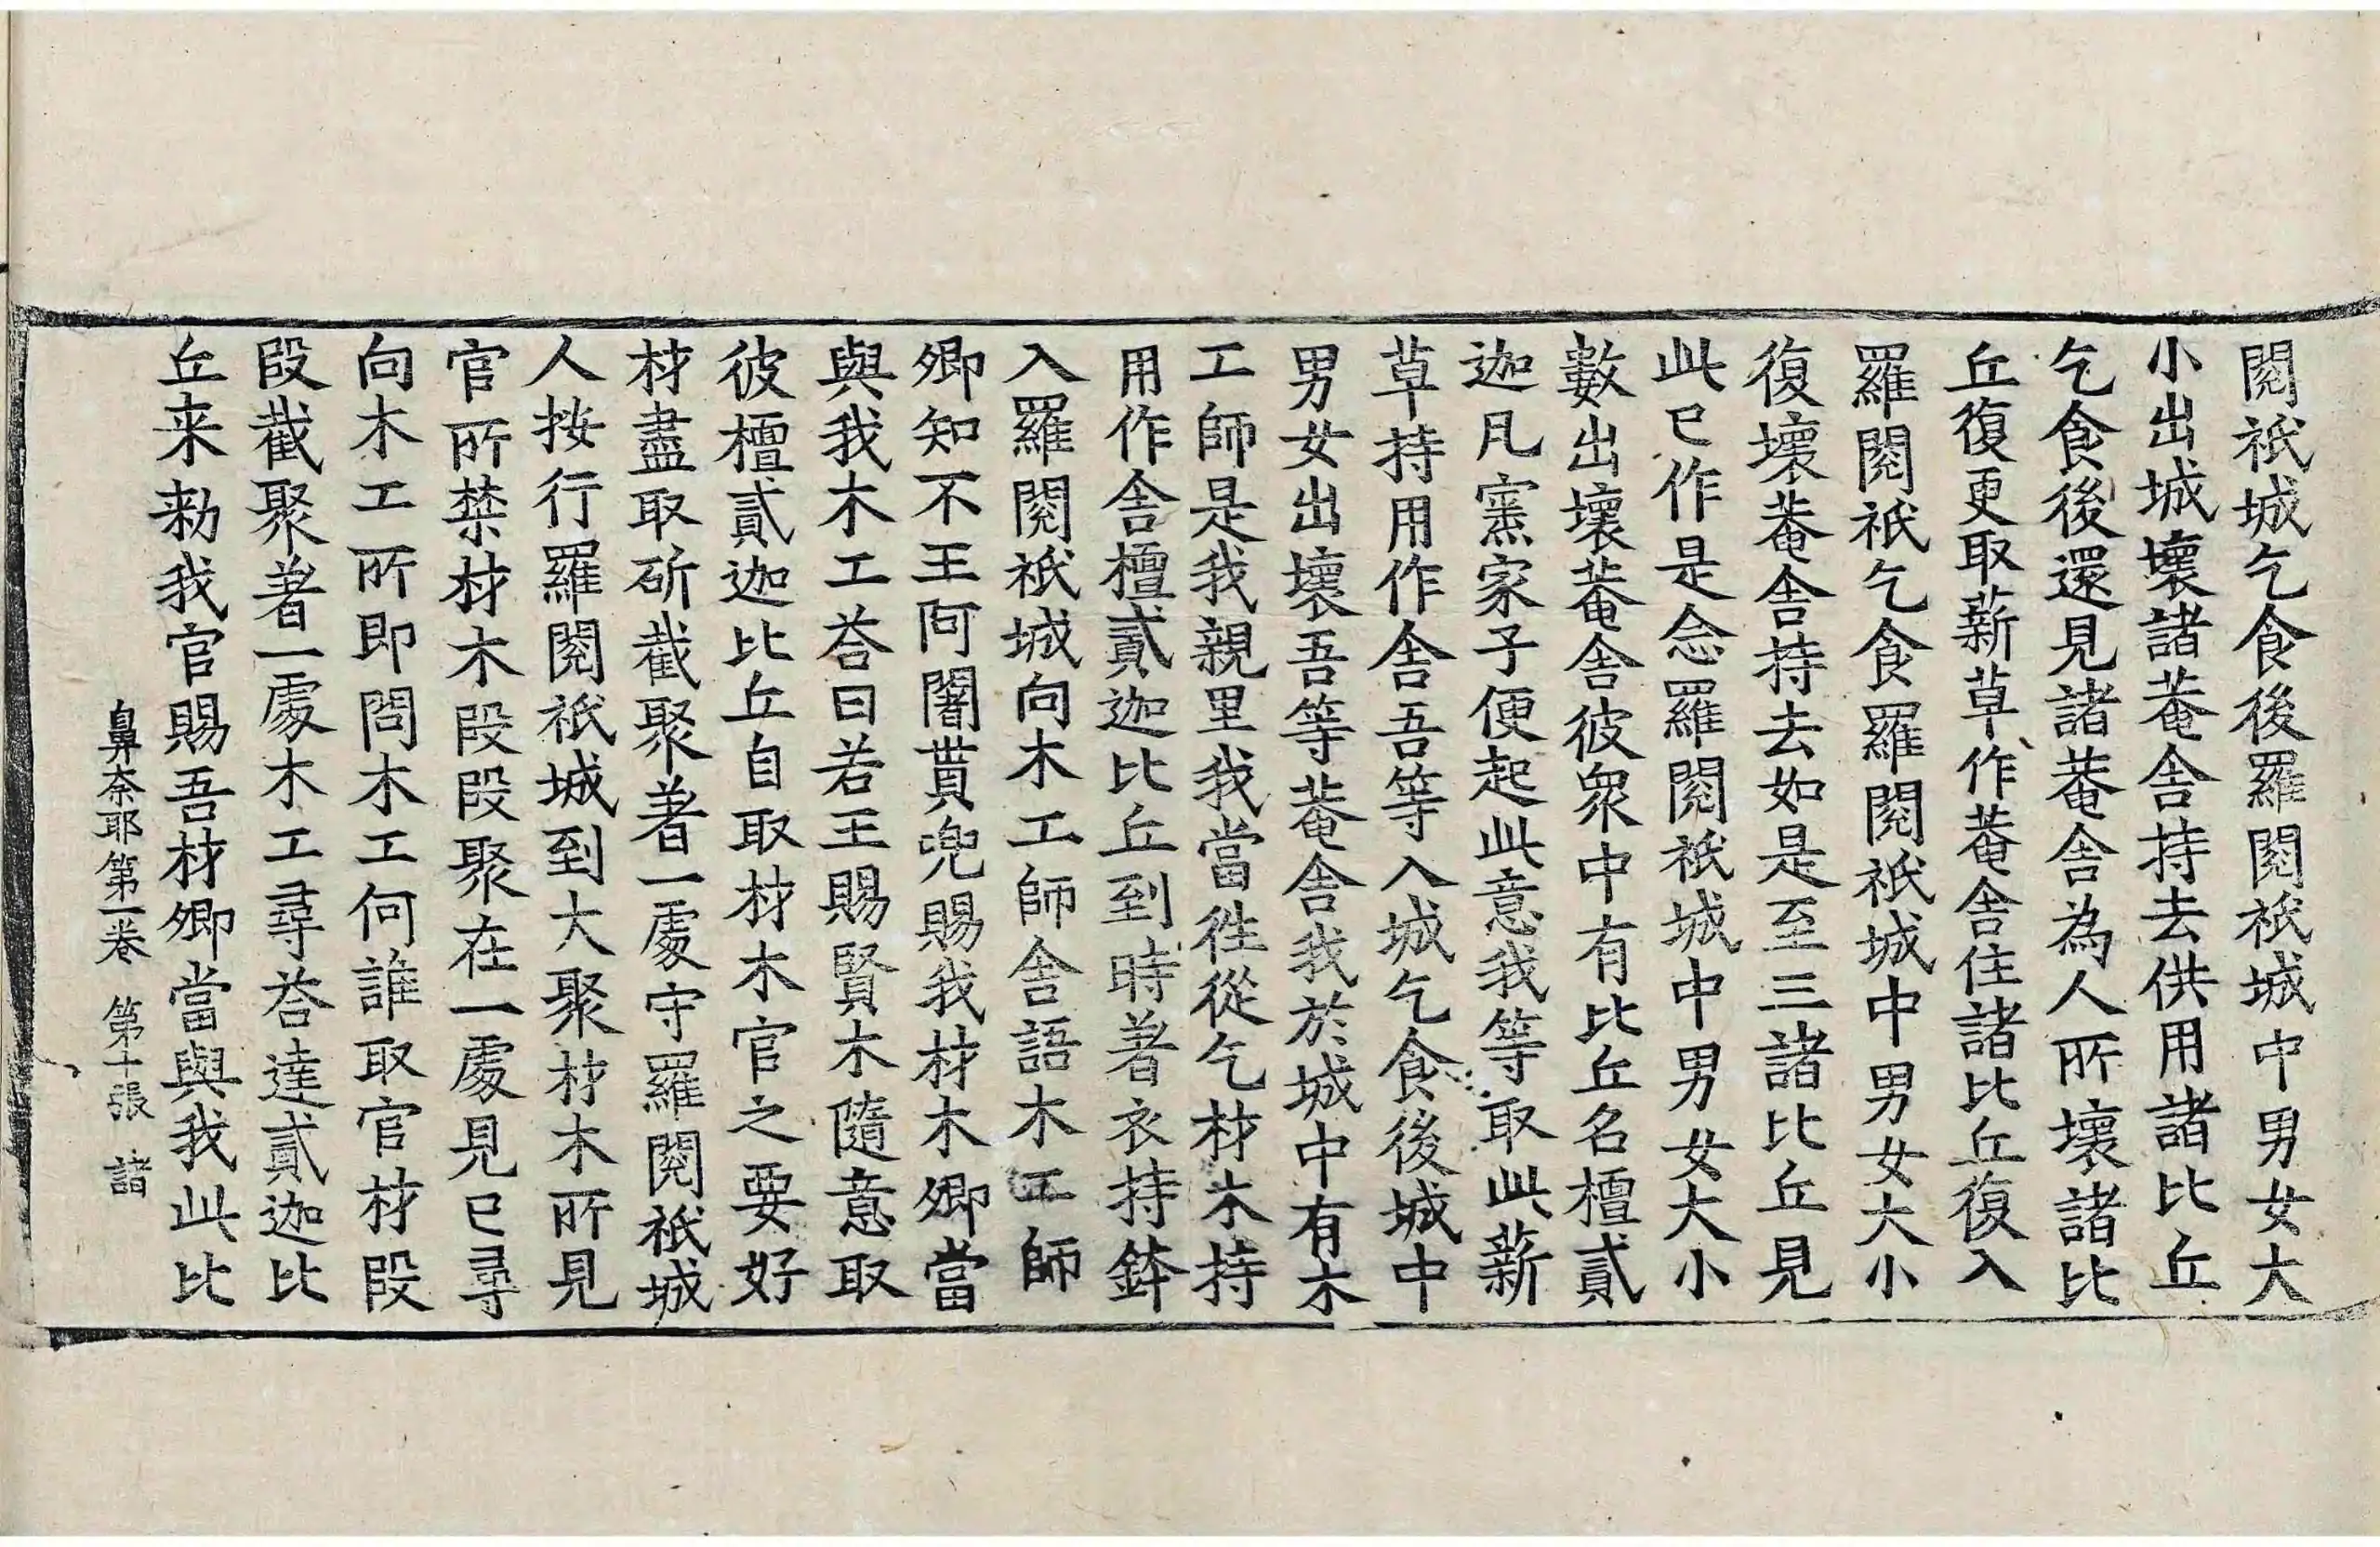 閱祇城乞食後羅閱祇城中男女大
小出城壞諸菴舍持去供用諸比丘
乞食後還見諸菴舍為人所壞諸比
丘復更取薪草作菴舍住諸比丘復入
羅閱祇乞食羅閱祇城中男女大小
復壞菴舍持去如是至三諸比丘見
此已作是念羅閱祇城中男女大小
數出壞菴舍彼眾中有比丘名檀貳
迦凡窯家子便起此意我等取此薪
草持用作舍吾等入城乞食後城中
男女出壞吾等菴舍我於城中有木
工師是我親里我當往從乞材木持
用作舍檀貳迦比丘到時著衣持鉢
入羅閱祇城向木工師舍語木工師
卿知不王阿闍貰兜賜我材木卿當
與我木工荅曰若王賜賢木隨意取
彼檀貳迦比丘自取材木官之要好
材盡取斫截聚著一處守羅閱祇城
人按行羅閱祇城到大聚材木所見
官所禁材木段段聚在一處見已尋
向木工所即問木工何誰取官材段
段截聚著一處木工尋荅達貳迦比
丘来勑我官賜吾材卿當與我此比
鼻奈耶第一卷 第十張 諸